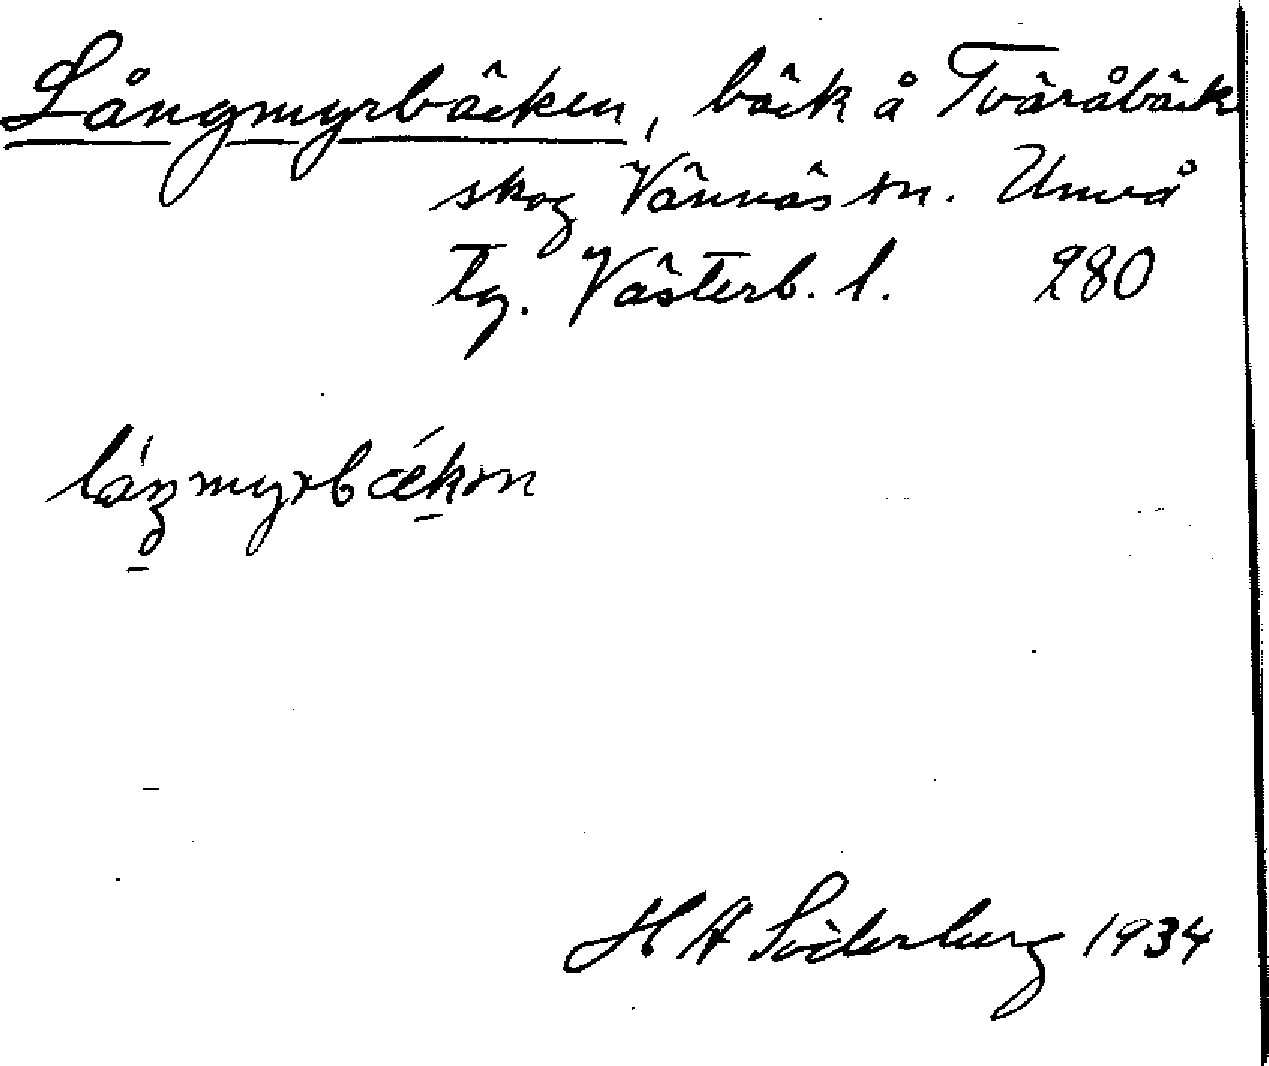 Långmyrbäcken, bäck å Tväråbäck
skog Vännäs sn. Umeå
tg. Västerb. l. 280
H A Söderberg 1934